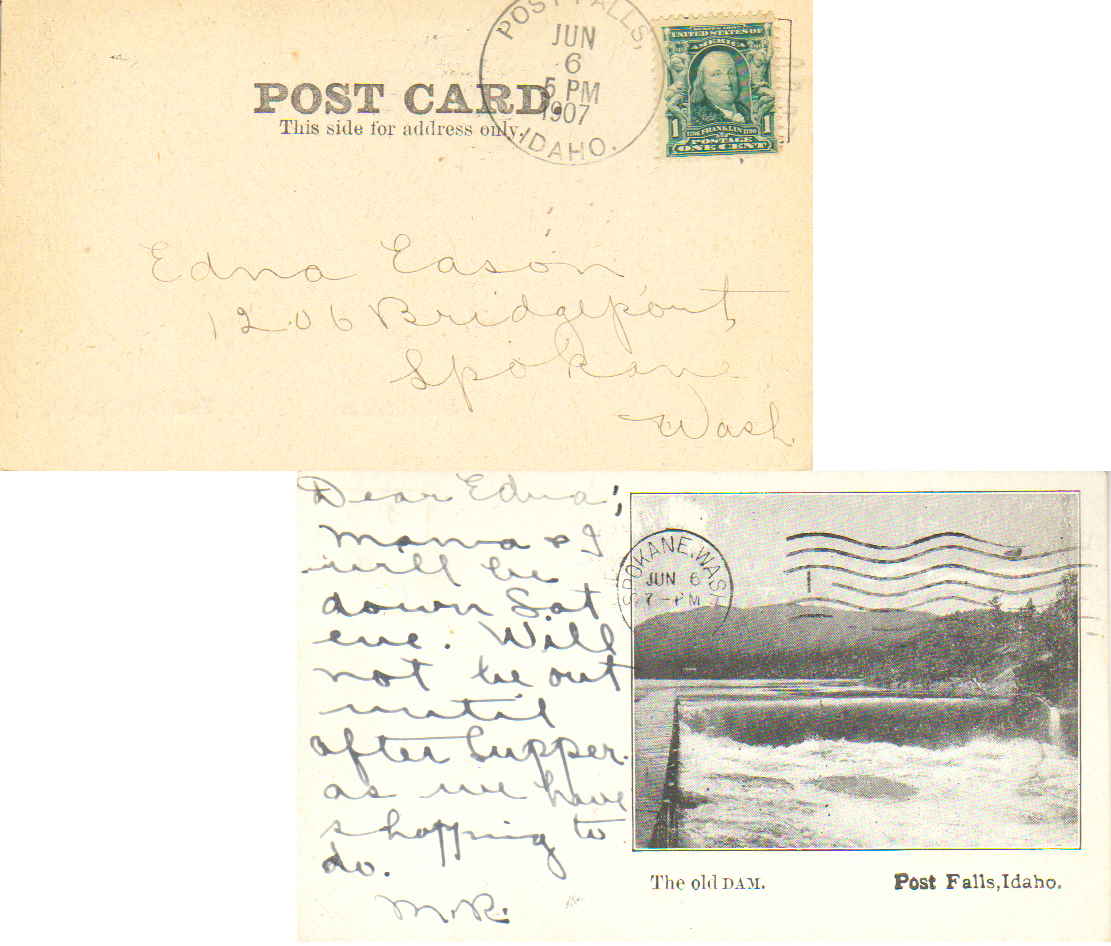 POST FALLS,
JUN
6
5 PM
1907
IDAHO.
SERIES 1902
UNITED STATES OF
AMERICA
1706 FRANKLIN 1790
1 1
POSTAGE
ONE CENT
POST CARD.
This side for address only.
Edna Eason
1206 Bridgeport
Spokane
Wash
Dear Edna;
Mama & I
will be
down Sat
eve. Will
not be out
until
after supper.
as we have
shopping to
do.
M.R.
SPOKANE, WASH
JUN 6
7 - PM
1
The old DAM.
Post Falls, Idaho.